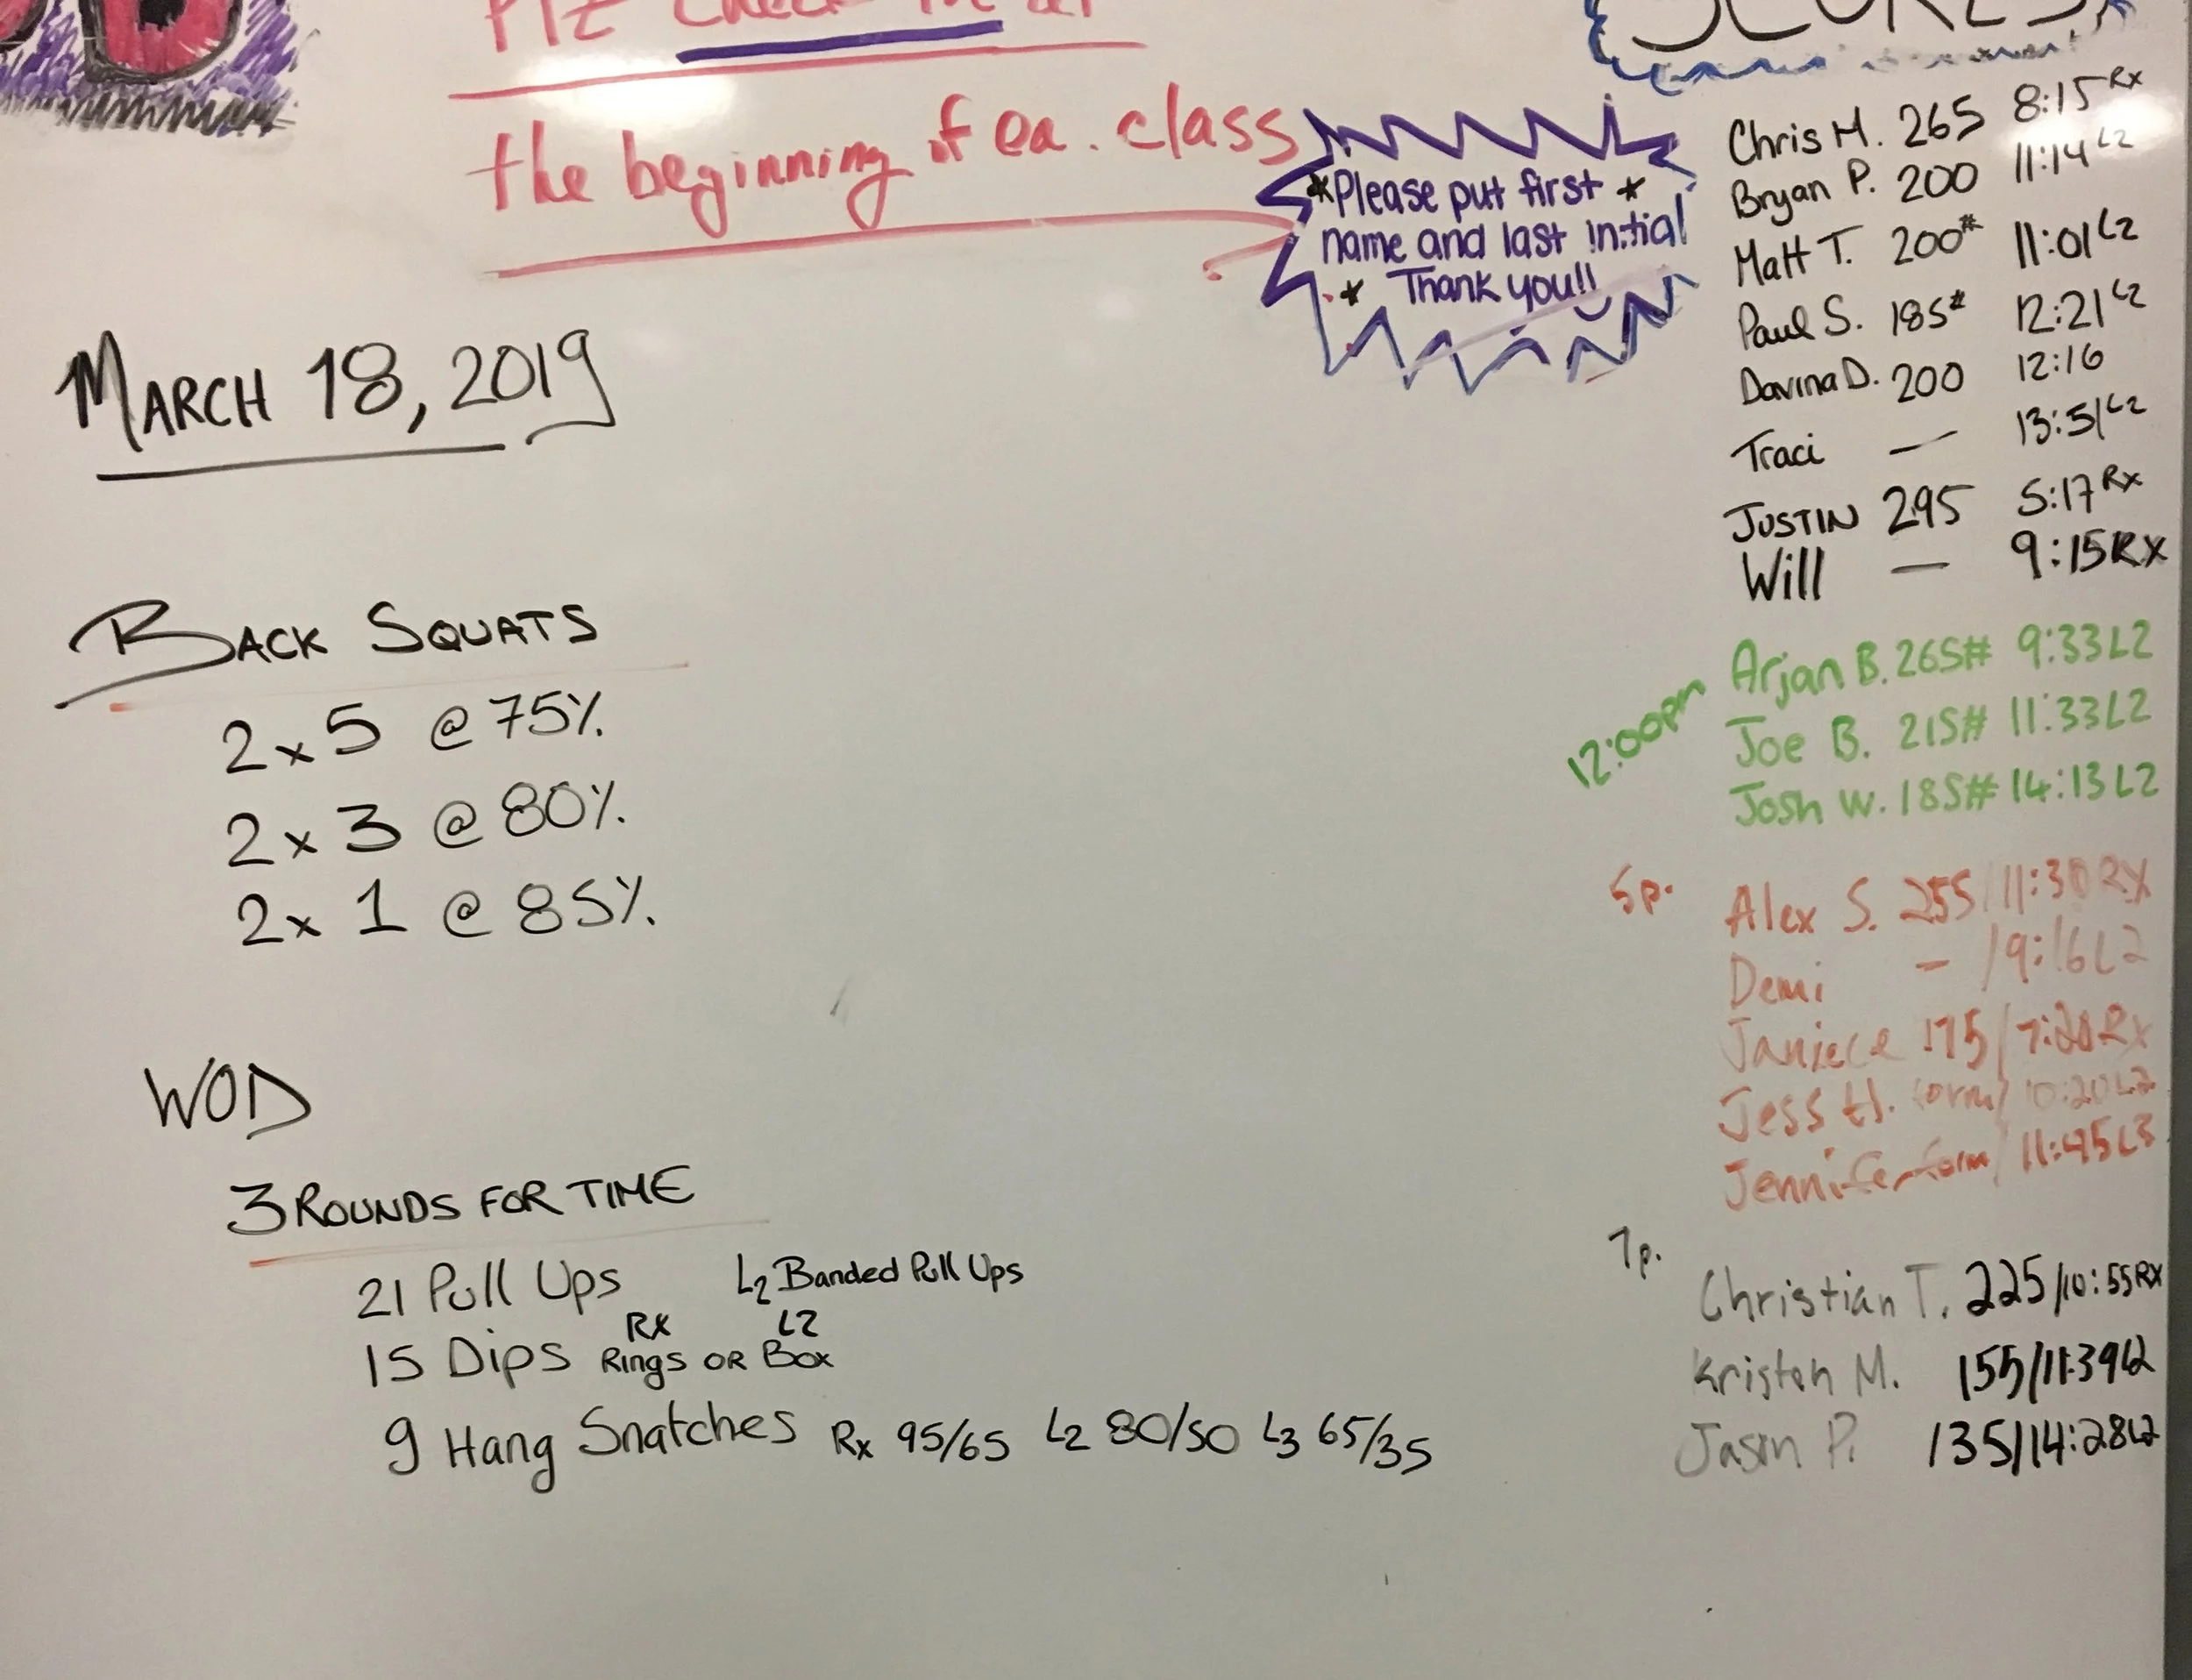 Plz check in at
the beginning of ea. class
SCORES
*Please put first *
name and last initial
* Thank you!!
MARCH 18, 2019
BACK SQUATS
2x5 @ 75%
2x3 @ 80%
2x 1 @ 85%
WOD
3 ROUNDS FOR TIME
21 Pull Ups L2 Banded Pull Ups
RX L2
15 Dips Rings OR Box
9 Hang Snatches Rx 95/65 L2 80/50 L3 65/35
Chris M. 265 8:15 Rx
Bryan P. 200 11:14 L2
Matt T. 200# 11:01 L2
Paul S. 185# 12:21 L2
Davina D. 200 12:16
Traci — 13:51 L2
JUSTIN 295 5:17 Rx
Will — 9:15 RX
12:00pm
Arjan B. 265# 9:33 L2
Joe B. 215# 11:33 L2
Josh W. 185# 14:13 L2
5p.
Alex S. 255/11:30 RX
Demi - /9:16 L2
Janiece 175/7:20 Rx
Jess H. form/10:20 L2
Jennifer form/11:45 L3
7p.
Christian T. 225/10:55 RX
Kristen M. 155/11:39 L2
Jason P. 135/14:28 L2